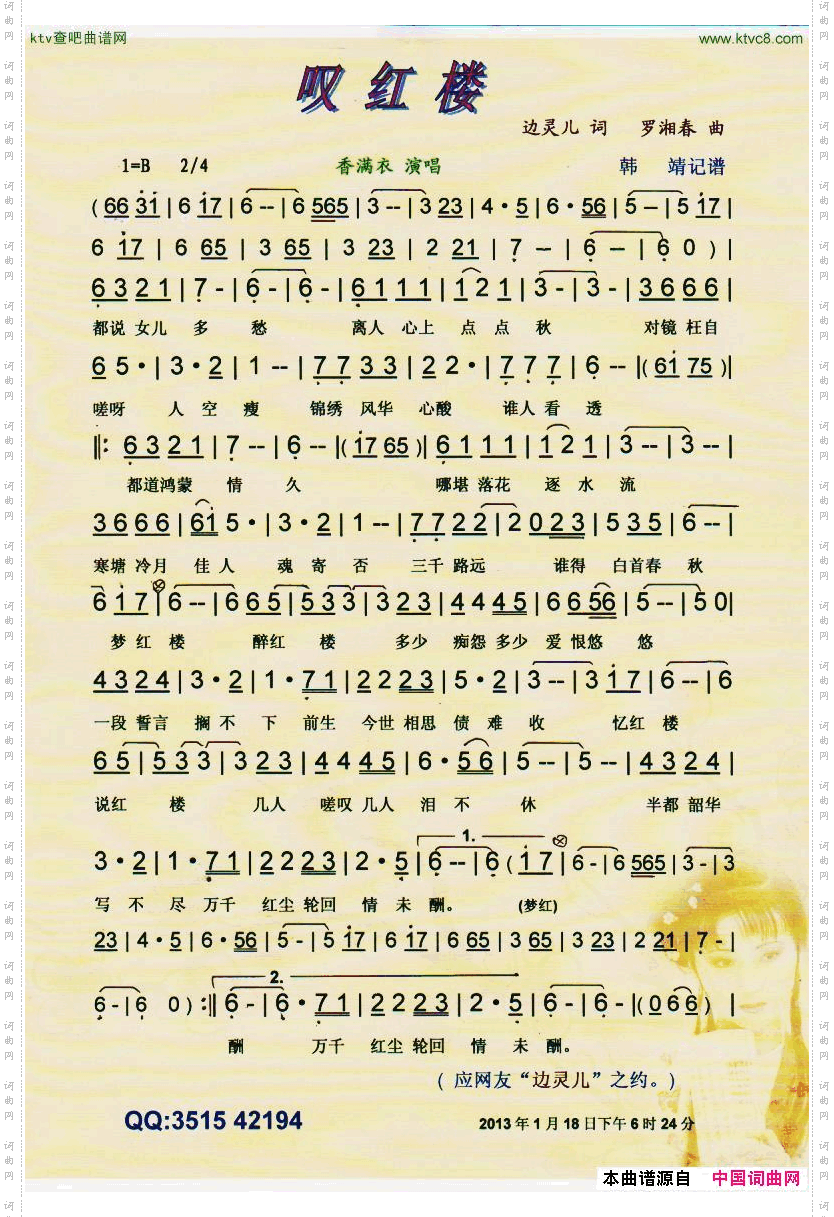 ktv查吧曲谱网 www.ktvc8.com
叹红楼
边灵儿 词 罗湘春 曲
1=B 2/4 香满衣 演唱 韩 靖记谱
( 66 31 | 6 17 | 6 -- | 6 565 | 3 -- | 3 23 | 4 · 5 | 6 · 56 | 5 -- | 5 17 |
6 17 | 6 65 | 3 65 | 3 23 | 2 21 | 7 - | 6 - | 6 0 ) |
6 3 2 1 | 7 - | 6 - | 6 - | 6 1 1 1 | 1 2 1 | 3 - | 3 - | 3 6 6 6 |
都说 女儿 多 愁 离人 心上 点 点 秋 对镜 枉自
6 5 · | 3 · 2 | 1 -- | 7 7 3 3 | 2 2 · | 7 7 7 | 6 -- | ( 61 75 ) |
嗟呀 人 空 瘦 锦绣 风华 心酸 谁人 看 透
‖: 6 3 2 1 | 7 -- | 6 -- | ( 17 65 ) | 6 1 1 1 | 1 2 1 | 3 -- | 3 -- |
都道鸿蒙 情 久 哪堪 落花 逐 水 流
3 6 6 6 | 61 5 · | 3 · 2 | 1 -- | 7 7 2 2 | 2 0 2 3 | 5 3 5 | 6 -- |
寒塘 冷月 佳 人 魂 寄 否 三千 路远 谁得 白首春 秋
6 1 7 | 6 -- | 6 6 5 | 5 3 3 | 3 2 3 | 4 4 4 5 | 6 6 56 | 5 -- | 5 0 |
梦 红 楼 醉红 楼 多少 痴怨 多少 爱 恨悠 悠
4 3 2 4 | 3 · 2 | 1 · 7 1 | 2 2 2 3 | 5 · 2 | 3 -- | 3 1 7 | 6 -- | 6
一段 誓言 搁 不 下 前生 今世 相思 债 难 收 忆红 楼
6 5 | 5 3 3 | 3 2 3 | 4 4 4 5 | 6 · 5 6 | 5 -- | 5 -- | 4 3 2 4 |
说红 楼 几人 嗟叹 几人 泪 不 休 半都 韶华
1.
3 · 2 | 1 · 7 1 | 2 2 2 3 | 2 · 5 | 6 -- | 6 ( 1 7 | 6 - | 6 565 | 3 - | 3
写 不 尽 万千 红尘 轮回 情 未 酬。 (梦红)
23 | 4 · 5 | 6 · 56 | 5 - | 5 17 | 6 17 | 6 65 | 3 65 | 3 23 | 2 21 | 7 - |
2.
6 - | 6 0 ) :‖ 6 - | 6 · 7 1 | 2 2 2 3 | 2 · 5 | 6 - | 6 - | ( 0 6 6 ) |
酬 万千 红尘 轮回 情 未 酬。
( 应网友“边灵儿”之约。)
QQ:3515 42194 2013 年 1 月 18 日下午 6 时 24 分
本曲谱源自 中国词曲网